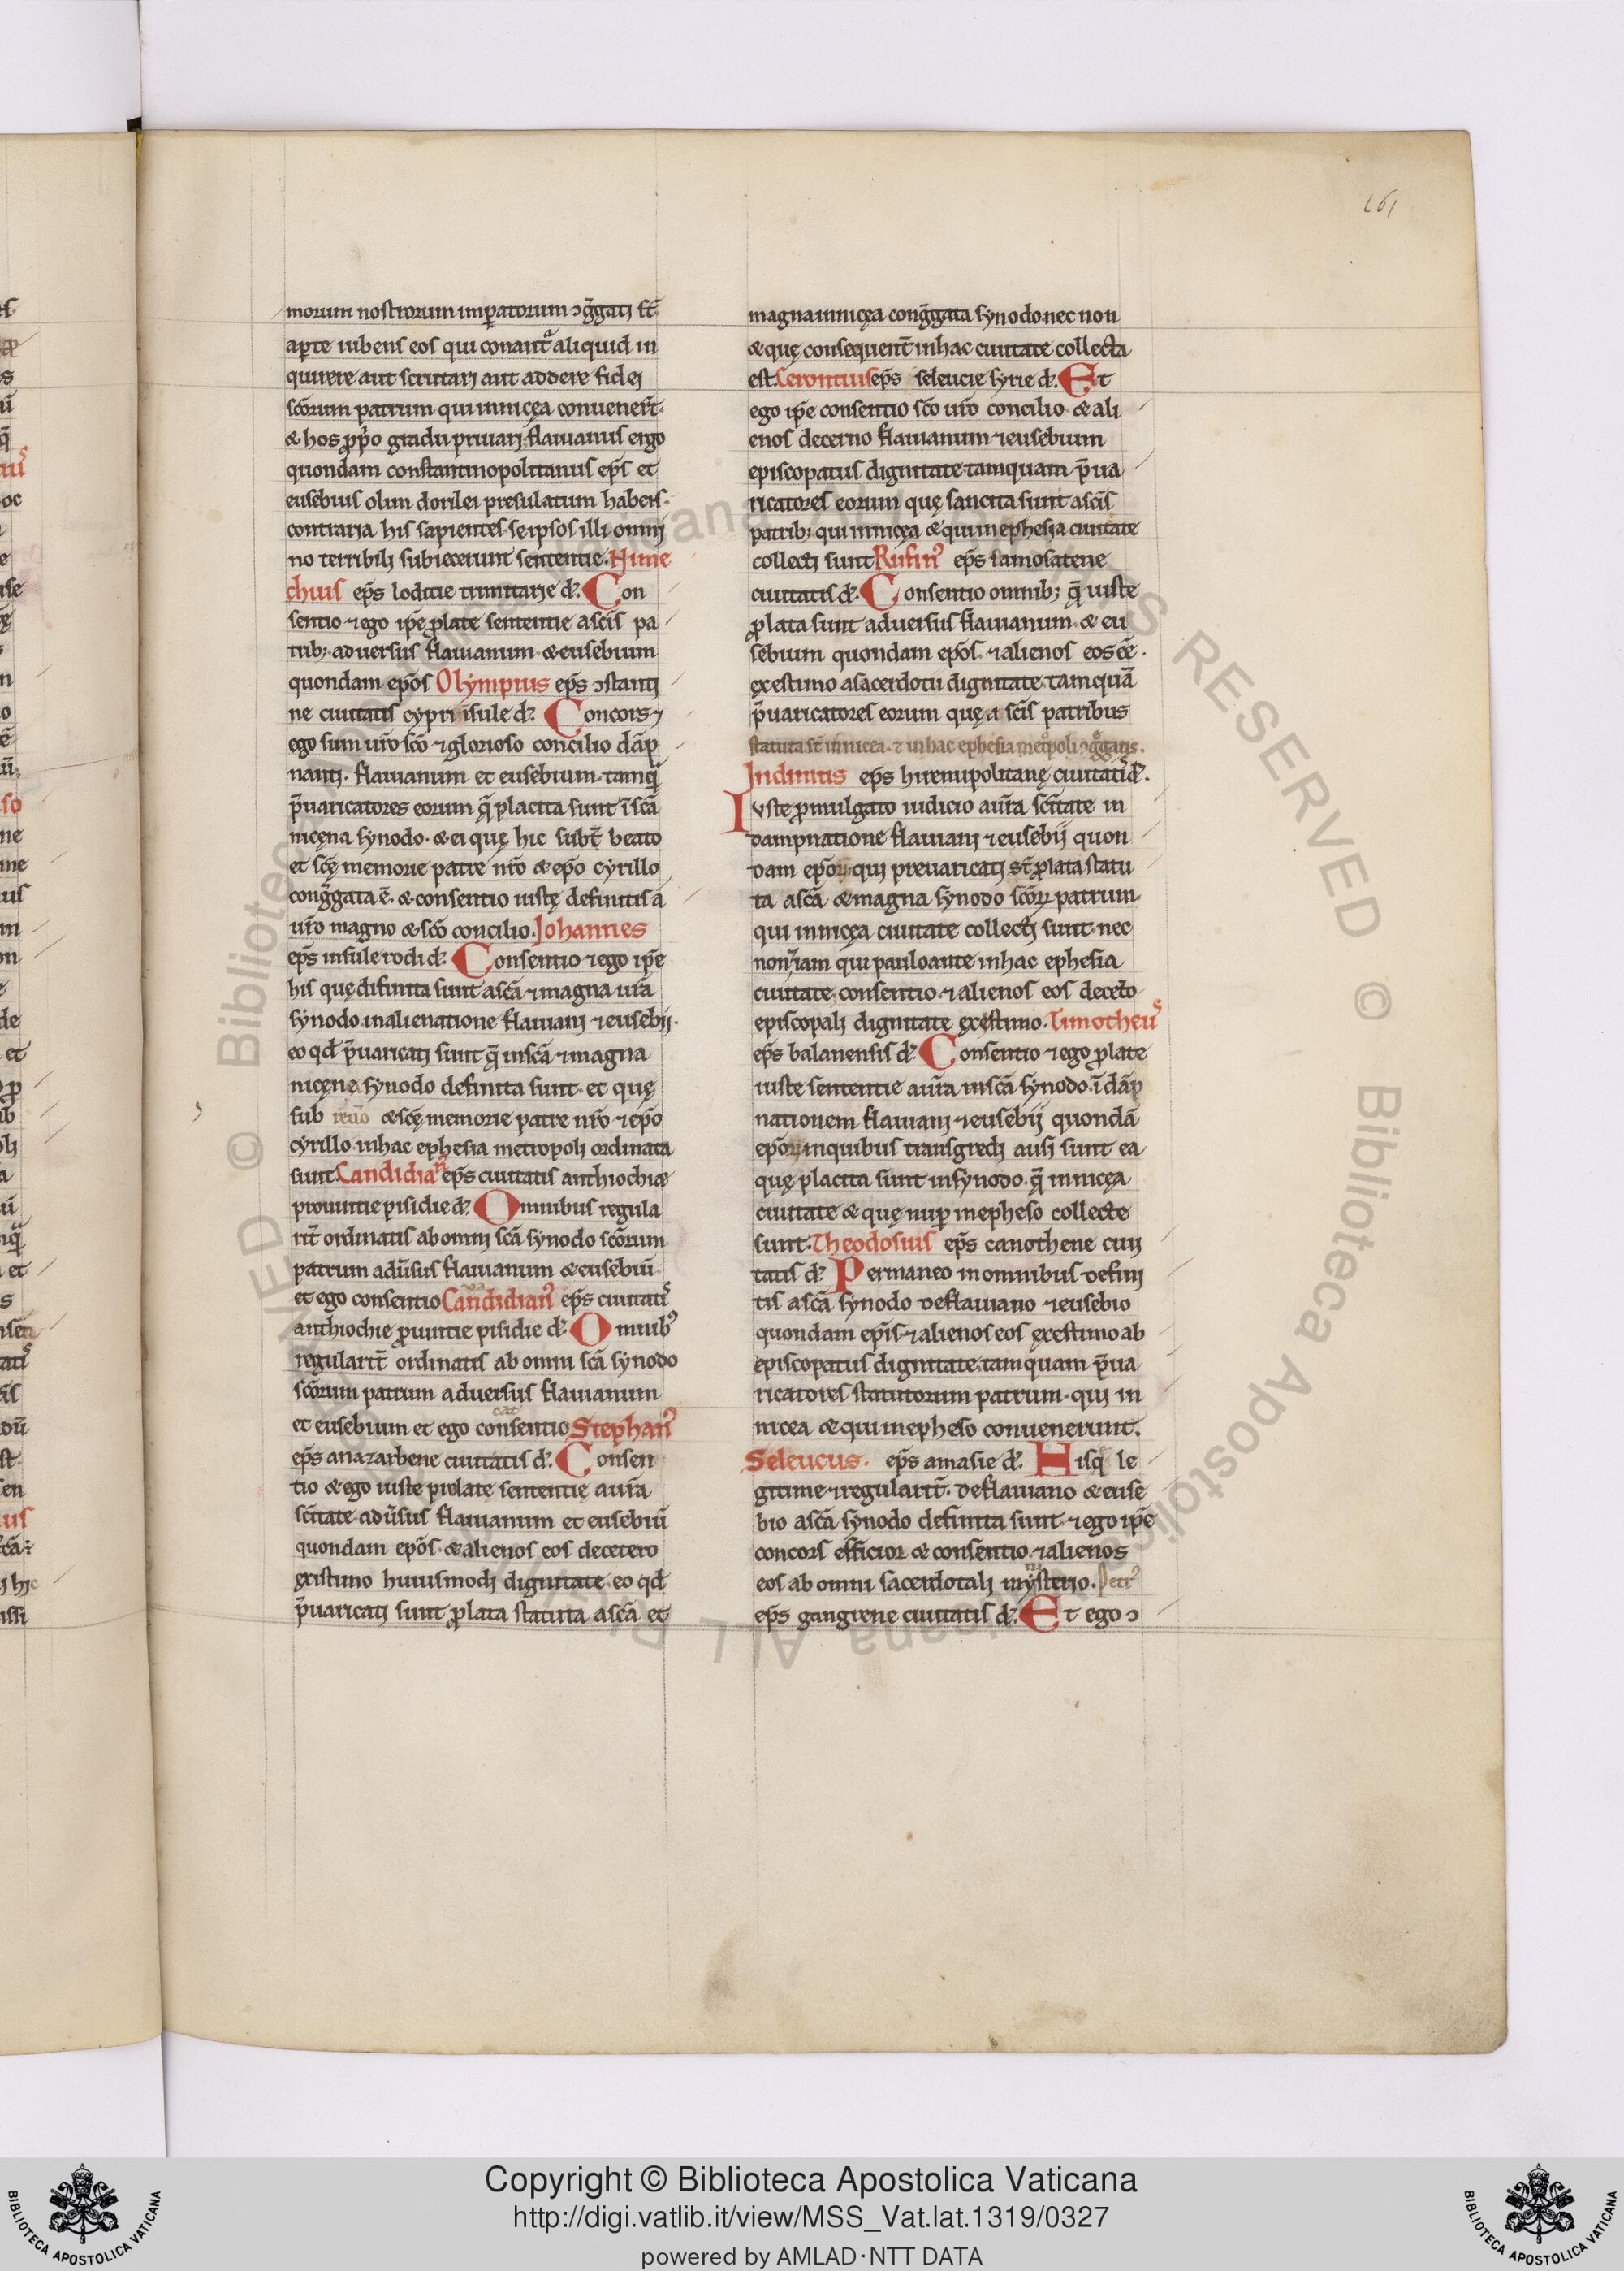 161
morum nostrorum imꝑatorum ɔg̃gatj st̃.
aꝑte iubens eos qui conant᷑ aliquid in
quirere aut scrutarj aut addere fidej
sc̃orum patrum qui innicęa conuener̃t.
& hos ꝓp̃o gradu priuarj. flauianus ergo
quondam constantinopolitanus ep̃s et
eusebius olim dorilei presulatum habens.
contrarja his sapientes. seipsos illi omnj
no terribilj subiecerunt sententie. Nune
chius ep̃s loditie trinitarje d̃. Con
sentio ⁊ ego ip̃e ꝓlate sententie asc̃is pa
trib; aduersus flauianum. & eusebium
quondam ep̃os Olympius ep̃s ɔstantj
ne ciuitatis cypri isule d̃. Concors ⁊
ego sum ur̃o sc̃o ⁊ glorioso concilio dãp
nantj. flauianum et eusebium. tamq̃
p̃uaricatores eorum q̃ placita sunt ĩ sc̃a
nicęna synodo. & ei quę hic subt̃ beato
et sc̃ę memorie patre nr̃o & ep̃o cyrillo
cong̃gata ẽ. & consentio iustę definitis a
ur̃o magno & sc̃o concilio. Johannes
ep̃s insule rodi d̃. Consentio ⁊ ego ip̃e
his quę difinita sunt asc̃a ⁊ magna ur̃a
synodo. inalienatione flauianj ⁊ eusebij.
eo qd̃ p̃uaricatj sunt q̃ insc̃a ⁊ magna
nicęne synodo definita sunt. et quę
sub & sc̃ę memorie patre nr̃o ⁊ ep̃o
cyrillo inhac ephesia metropolj ordinata
sunt. Candidian᷒ ep̃s ciuitatis anthiochiæ
prouintie pisidie d̃. Omnibus regula
rit̃ ordinatis ab omnj sc̃a synodo sc̃orum
patrum adũsus flauianum & eusebiũ.
et ego consentio Candidian᷒ ep̃s ciuitat᷒
anthiochie ꝓuintie pisidie d̃. Omnib᷒
regularit̃ ordinatis ab omni sc̃a synodo
sc̃orum patrum aduersus flauianum
et eusebium et ego consentio Stephan᷒
ep̃s anazarbene ciuitatis d̃. Consen
tio & ego iuste prolate sententie aur̃a
sc̃itate adũsus flauianum et eusebiũ
quondam ep̃os. & alienos eos decetero
existimo huiusmodj dignitate. eo qd̃
p̃uaricatj sunt ꝓlata statuta asc̃a et
magna innicęa cong̃gata synodo nec non
& quę consequent̃ inhac ciuitate collecta
est. Gerontius ep̃s seleucie syrie d̃. Et
ego ip̃e consentio sc̃o ur̃o concilio. & ali
enos decerno flauianum ⁊ eusebium
episcopatus dignitate tamquam p̃ua
ricatores eorum quę sancita sunt asc̃is
patrib; qui innicęa & qui in ephesia ciuitate
collectj sunt Rufin᷒ ep̃s samosatene
ciuitatis d̃. Consentio omnib; q̃ iuste
ꝓlata sunt aduersus flauianum. & eu
sebium quondam ep̃os. ⁊ alienos eos ẽe.
exestimo asacerdotii dignitate. tamquã
p̃uaricatores eorum quę a sc̃is patribus
statuta st̃ innicea. ⁊ inhac ephesia met͛poli ɔg̃gatis.
Indimus ep̃s hirenupolitanę ciuitat᷒ d̃.
Iuste promulgato iudicio aur̃a sc̃itate in
dampnatione flauianj ⁊ eusebij quon
dam ep̃oꝝ. quj preuaricatj st̃ ꝓlata statu
ta asc̃a & magna synodo sc̃oꝝ patrum.
qui innicęa ciuitate collectj sunt. nec
non ⁊ iam qui pauloante inhac ephesia
ciuitate. consentio. ⁊ alienos eos deceto
episcopalj dignitate exęstimo. Timotheu᷒
ep̃s balanensis d̃. Consentio ⁊ ego ꝓlate
iuste sententie aur̃a insc̃a synodo. ĩ dãp
nationem flauianj ⁊ eusebij quondã
ep̃oꝝ inquibus transgredj ausj sunt ea
quę placita sunt insynodo. q̃ innicęa
ciuitate & quę nuꝑ inepheso collecte
sunt. Theodosius ep̃s canothene ciuj
tatis d̃. Permaneo inomnibus definj
tis asc̃a synodo deflauiano ⁊ eusebio
quondam ep̃is ⁊ alienos eos ęxestimo ab
episcopatus dignitate. tamquam p̃ua
ricatores statutorum patrum. quj in
nicea & qui inepheso conuenerunt.
Seleucus. ep̃s amasie d̃. Hisq̃ le
gitime ⁊ regularit̃. deflauiano & euse
bio asc̃a synodo definita sunt. ⁊ ego ip̃e
concors efficior & consentio. ⁊ alienos
eos ab omni sacerdotalj mysterio. Petr᷒
ep̃s gangrene ciuitatis d̃. Et ego ɔ
Copyright © Biblioteca Apostolica Vaticana
http://digi.vatlib.it/view/MSS_Vat.lat.1319/0327
powered by AMLAD·NTT DATA
BIBLIOTECA APOSTOLICA VATICANA
BIBLIOTECA APOSTOLICA VATICANA